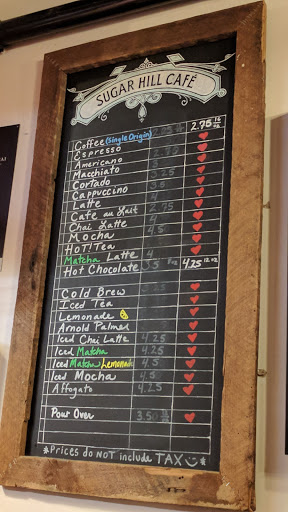 SUGAR HILL CAFÉ
Coffee (Single Origin) 2.75 16 oz
Espresso
Americano 3
Macchiato 3.25
Cortado
Cappuccino
Latte
Café au Lait 2.75
Chai Latte 4
Mocha 4.5
HOT! Tea
Matcha Latte 4
Hot Chocolate 4.25 12 oz
Cold Brew
Iced Tea
Lemonade
Arnold Palmer
Iced Chai Latte 4.25
Iced Matcha 4.25
Iced Matcha Lemonade 4.5
Iced Mocha 4.5
Affogato 4.25
Pour Over 3.50
*Prices do NOT include TAX *